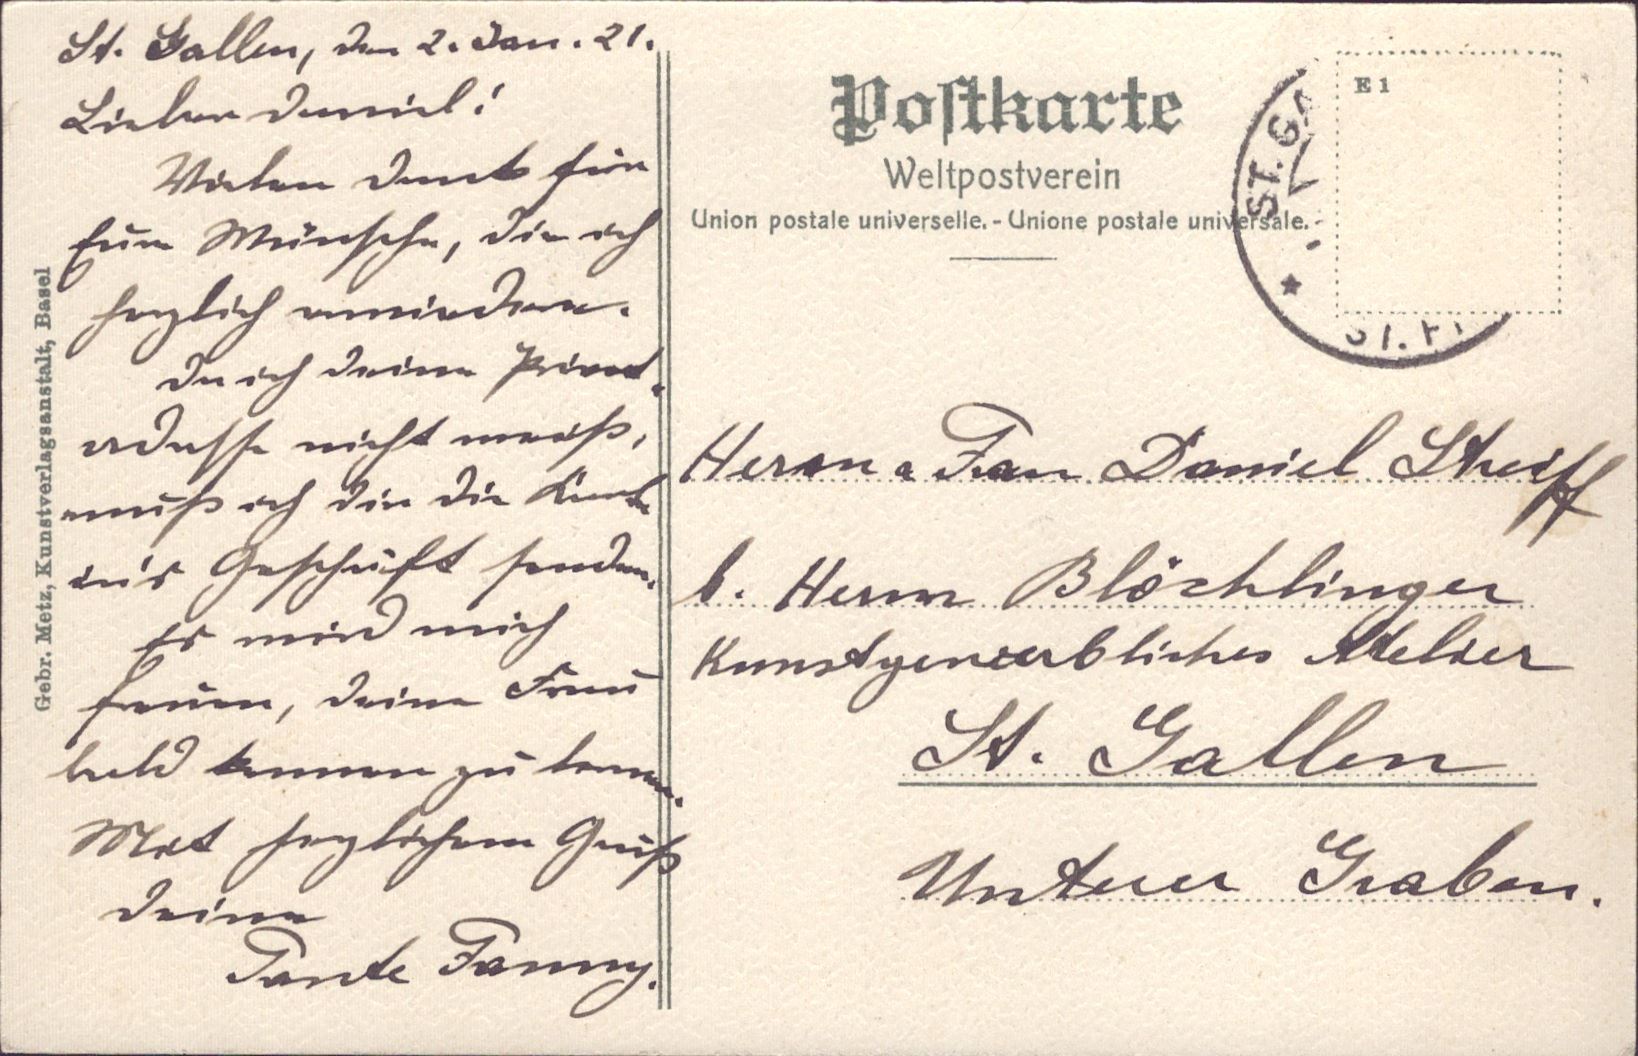 St. Gallen, den 2. Jan. 21.
Lieber Daniel!
Vielen Dank für
Eure Wünsche, die ich
herzlich erwiedere.
Da ich deine Privat-
adresse nicht weiß,
muß ich dir die Karte
in's Geschäft senden.
Es wird mich
freuen, deine Frau
bald kennen zu lernen.
Mit herzlichem Gruß
deine
Tante Fanny.
Gebr. Metz, Kunstverlagsanstalt, Basel
Postkarte
Weltpostverein
Union postale universelle. - Unione postale universale.
E 1
ST. GA
Herrn & Frau Daniel Streiff
b. Herrn Blöchlinger
Kunstgewerbliches Atelier
St. Gallen
Unterer Graben.